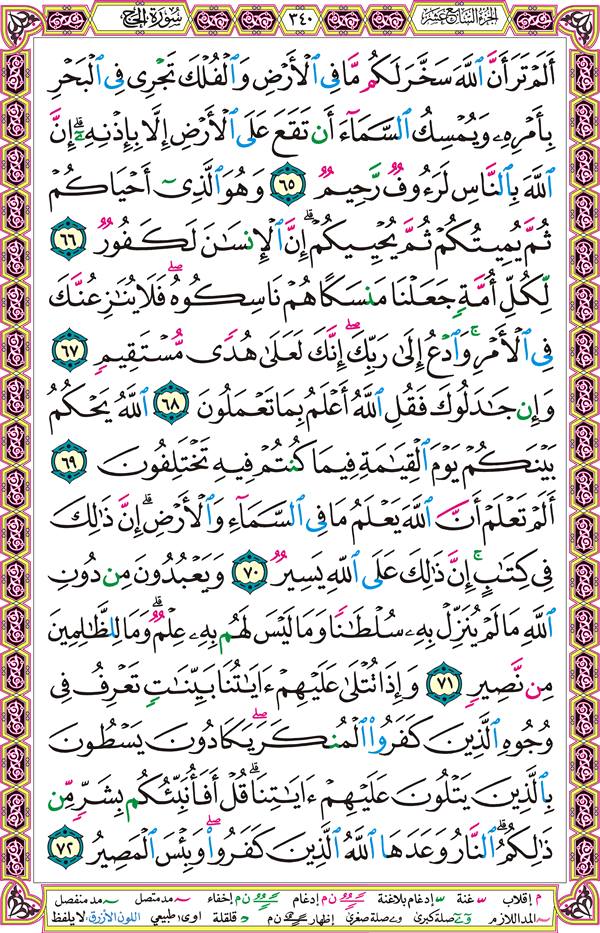 الجزء السابع عشر ٣٤٠ سورة الحج
أَلَمْ تَرَ أَنَّ ٱللَّهَ سَخَّرَ لَكُم مَّا فِى ٱلْأَرْضِ وَٱلْفُلْكَ تَجْرِى فِى ٱلْبَحْرِ
بِأَمْرِهِۦ وَيُمْسِكُ ٱلسَّمَآءَ أَن تَقَعَ عَلَى ٱلْأَرْضِ إِلَّا بِإِذْنِهِۦٓ ۗ إِنَّ
ٱللَّهَ بِٱلنَّاسِ لَرَءُوفٌ رَّحِيمٌ ٦٥ وَهُوَ ٱلَّذِىٓ أَحْيَاكُمْ
ثُمَّ يُمِيتُكُمْ ثُمَّ يُحْيِيكُمْ ۗ إِنَّ ٱلْإِنسَٰنَ لَكَفُورٌ ٦٦
لِّكُلِّ أُمَّةٍ جَعَلْنَا مَنسَكًا هُمْ نَاسِكُوهُ ۖ فَلَا يُنَٰزِعُنَّكَ
فِى ٱلْأَمْرِ ۚ وَٱدْعُ إِلَىٰ رَبِّكَ ۖ إِنَّكَ لَعَلَىٰ هُدًى مُّسْتَقِيمٍ ٦٧
وَإِن جَٰدَلُوكَ فَقُلِ ٱللَّهُ أَعْلَمُ بِمَا تَعْمَلُونَ ٦٨ ٱللَّهُ يَحْكُمُ
بَيْنَكُمْ يَوْمَ ٱلْقِيَٰمَةِ فِيمَا كُنتُمْ فِيهِ تَخْتَلِفُونَ ٦٩
أَلَمْ تَعْلَمْ أَنَّ ٱللَّهَ يَعْلَمُ مَا فِى ٱلسَّمَآءِ وَٱلْأَرْضِ ۗ إِنَّ ذَٰلِكَ
فِى كِتَٰبٍ ۚ إِنَّ ذَٰلِكَ عَلَى ٱللَّهِ يَسِيرٌ ٧٠ وَيَعْبُدُونَ مِن دُونِ
ٱللَّهِ مَا لَمْ يُنَزِّلْ بِهِۦ سُلْطَٰنًا وَمَا لَيْسَ لَهُم بِهِۦ عِلْمٌ ۗ وَمَا لِلظَّٰلِمِينَ
مِن نَّصِيرٍ ٧١ وَإِذَا تُتْلَىٰ عَلَيْهِمْ ءَايَٰتُنَا بَيِّنَٰتٍ تَعْرِفُ فِى
وُجُوهِ ٱلَّذِينَ كَفَرُوا۟ ٱلْمُنكَرَ ۖ يَكَادُونَ يَسْطُونَ
بِٱلَّذِينَ يَتْلُونَ عَلَيْهِمْ ءَايَٰتِنَا ۗ قُلْ أَفَأُنَبِّئُكُم بِشَرٍّ مِّن
ذَٰلِكُمُ ۗ ٱلنَّارُ وَعَدَهَا ٱللَّهُ ٱلَّذِينَ كَفَرُوا۟ ۖ وَبِئْسَ ٱلْمَصِيرُ ٧٢
م إقلاب غنة إدغام بلاغنة ن م إدغام ن م إخفاء مد متصل مد منفصل
المد اللازم صلة كبرى صلة صغرى إظهار ن م قلقلة اوى: طبيعي اللون الأزرق: لا يلفظ